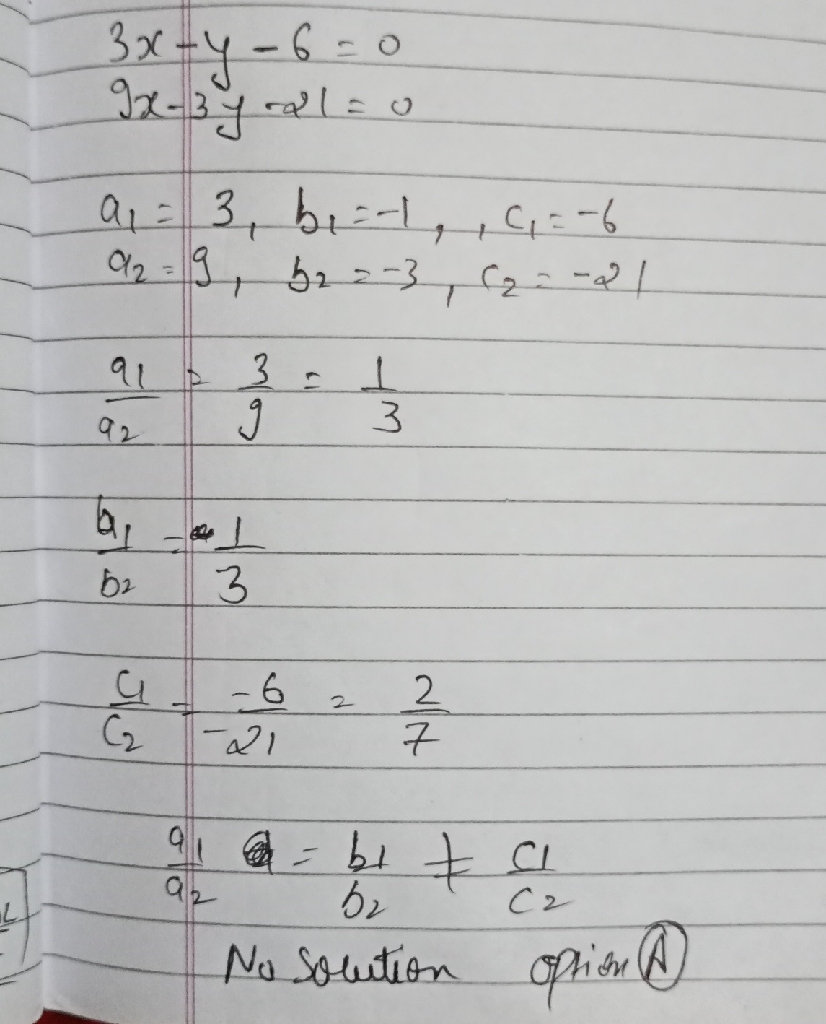 3x - y - 6 = 0
9x - 3y - 21 = 0
a1 = 3, b1 = -1, , c1 = -6
a2 = 9, b2 = -3, c2 = -21
a1/a2 = 3/9 = 1/3
b1/b2 = 1/3
c1/c2 = -6/-21 = 2/7
a1/a2 = b1/b2 ≠ c1/c2
No Solution option (A)